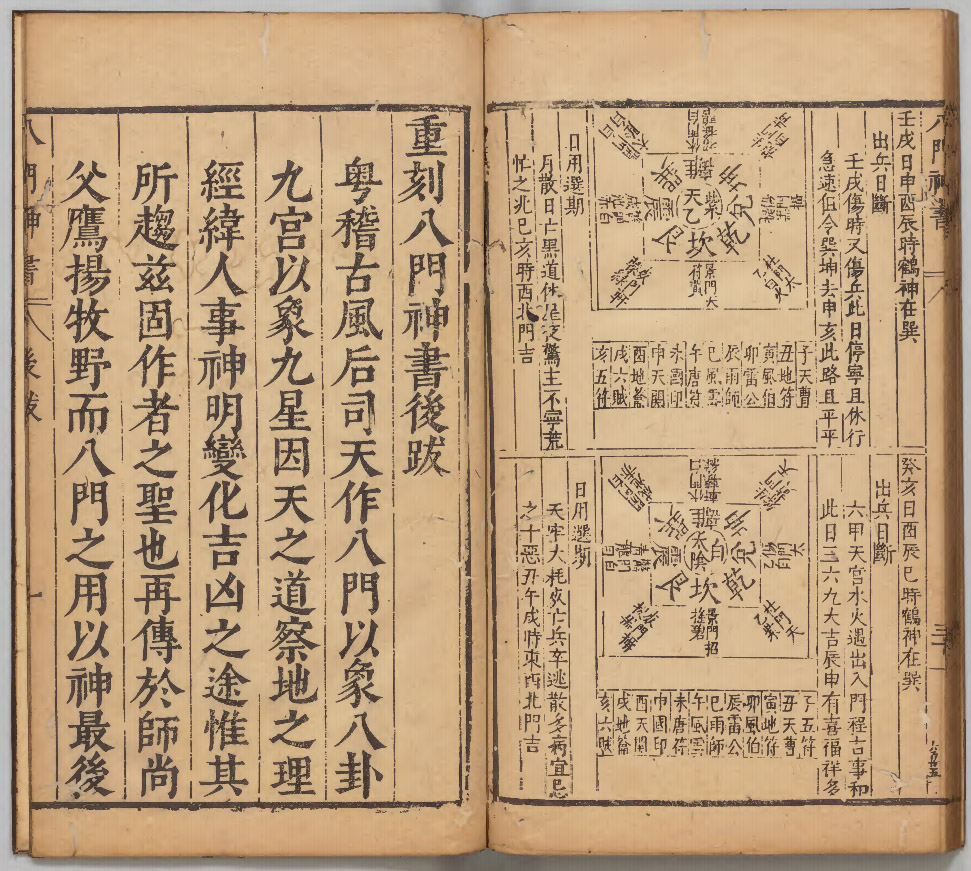 八門神書
壬戌日申酉辰時鶴神在巽
出兵日斷
壬戌傷時又傷兵此日停寧且休行
急速伍令巽坤去申亥此路且平平
巽 離 坤
震 天乙 紫 兌
艮 坎 乾
子天曹
丑地符
寅風伯
卯雷公
辰雨師
巳風雲
午唐符
未國印
申天關
酉地籥
戌六賊
亥五符
日用選期
月散日亡黑道休是安驚主不寧荒
忙之兆巳亥時西北門吉
癸亥日酉辰巳時鶴神在巽
出兵日斷
六甲天宮水火遇出入門程吉事和
此日三六九大吉辰申有喜福祥多
巽 離 坤
震 太陰 白 兌
艮 坎 乾
子五符
丑天曹
寅地符
卯風伯
辰雷公
巳雨師
午風雲
未唐符
申國印
酉天關
戌地籥
亥六賊
日用選期
天牢大耗敗亡兵卒逃散多病宜忌
之十惡丑午戌時東西北門吉
重刻八門神書後跋
粤稽古風后司天作八門以象八卦
九宮以象九星因天之道察地之理
經緯人事神明變化吉凶之途惟其
所趨茲固作者之聖也再傳於師尚
父鷹揚牧野而八門之用以神最後
八門神書 後跋 一